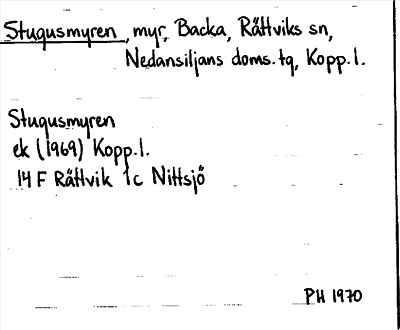 Stugusmyren, myr, Backa, Rättviks sn,
Nedansiljans doms. tg, Kopp. l.
Stugusmyren
ek (1969) Kopp. l.
14 F Rättvik 1c Nittsjö
PH 1970